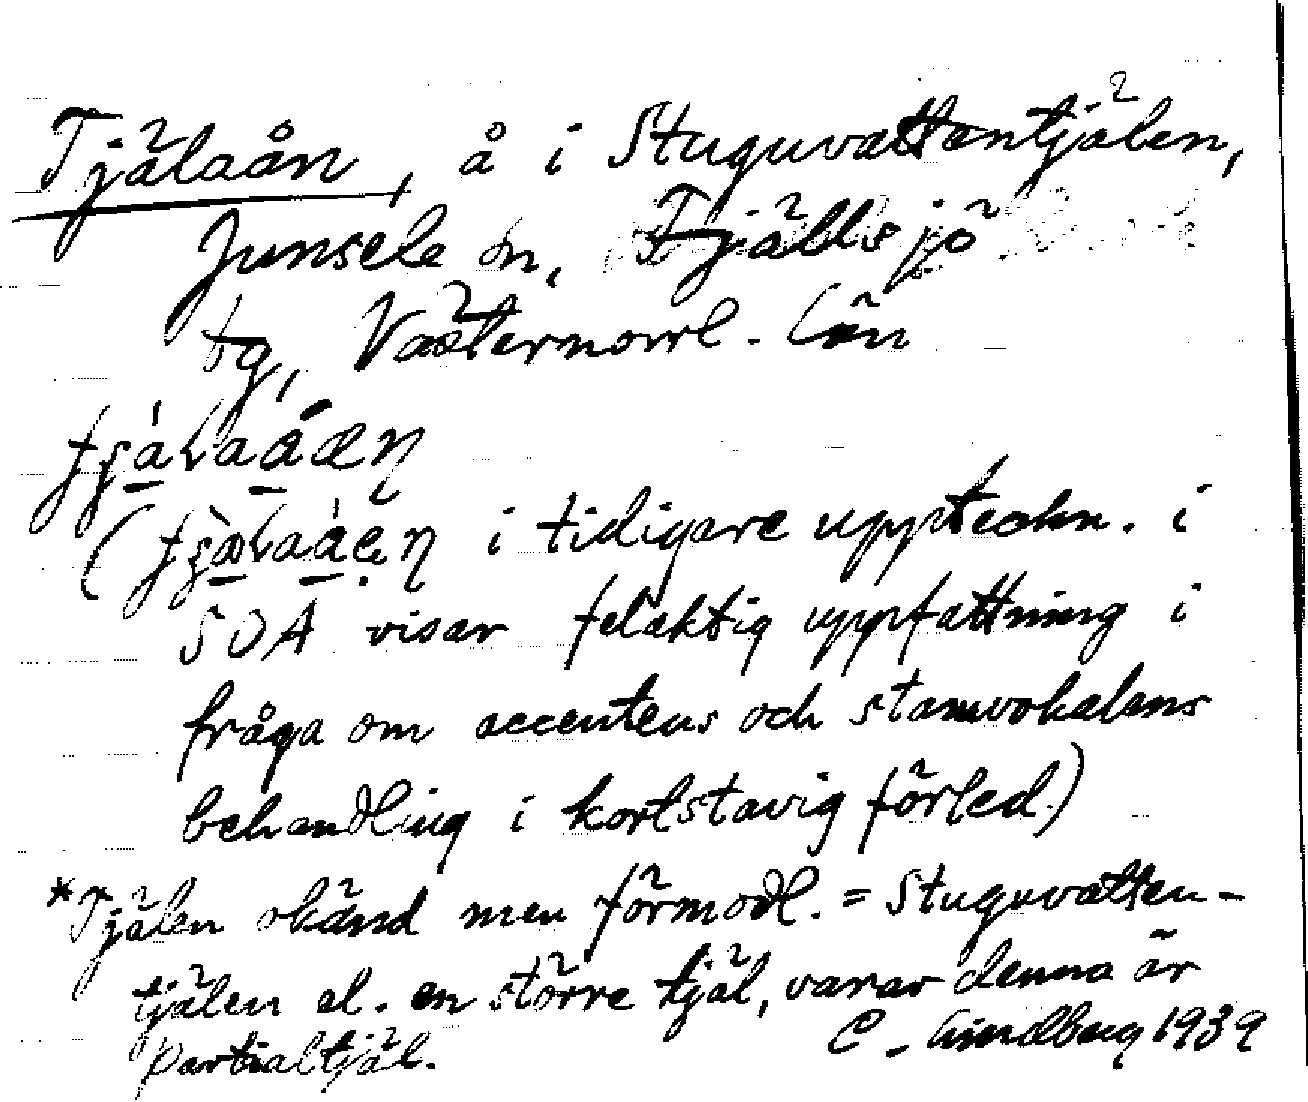 Tjälaån, å i Stuguvattentjälen,
Junsele sn, Fjällsjö
tg, Västernorrl. län
i tidigare uppteckn. i
SOA visar felaktig uppfattning i
fråga om accentens och stamvokalens
behandling i kortstavig förled.)
*Tjälen okänd men förmodl. = Stuguvatten-
tjälen el. en större tjäl, varav denna är
partialtjäl.
C. Lindberg 1939